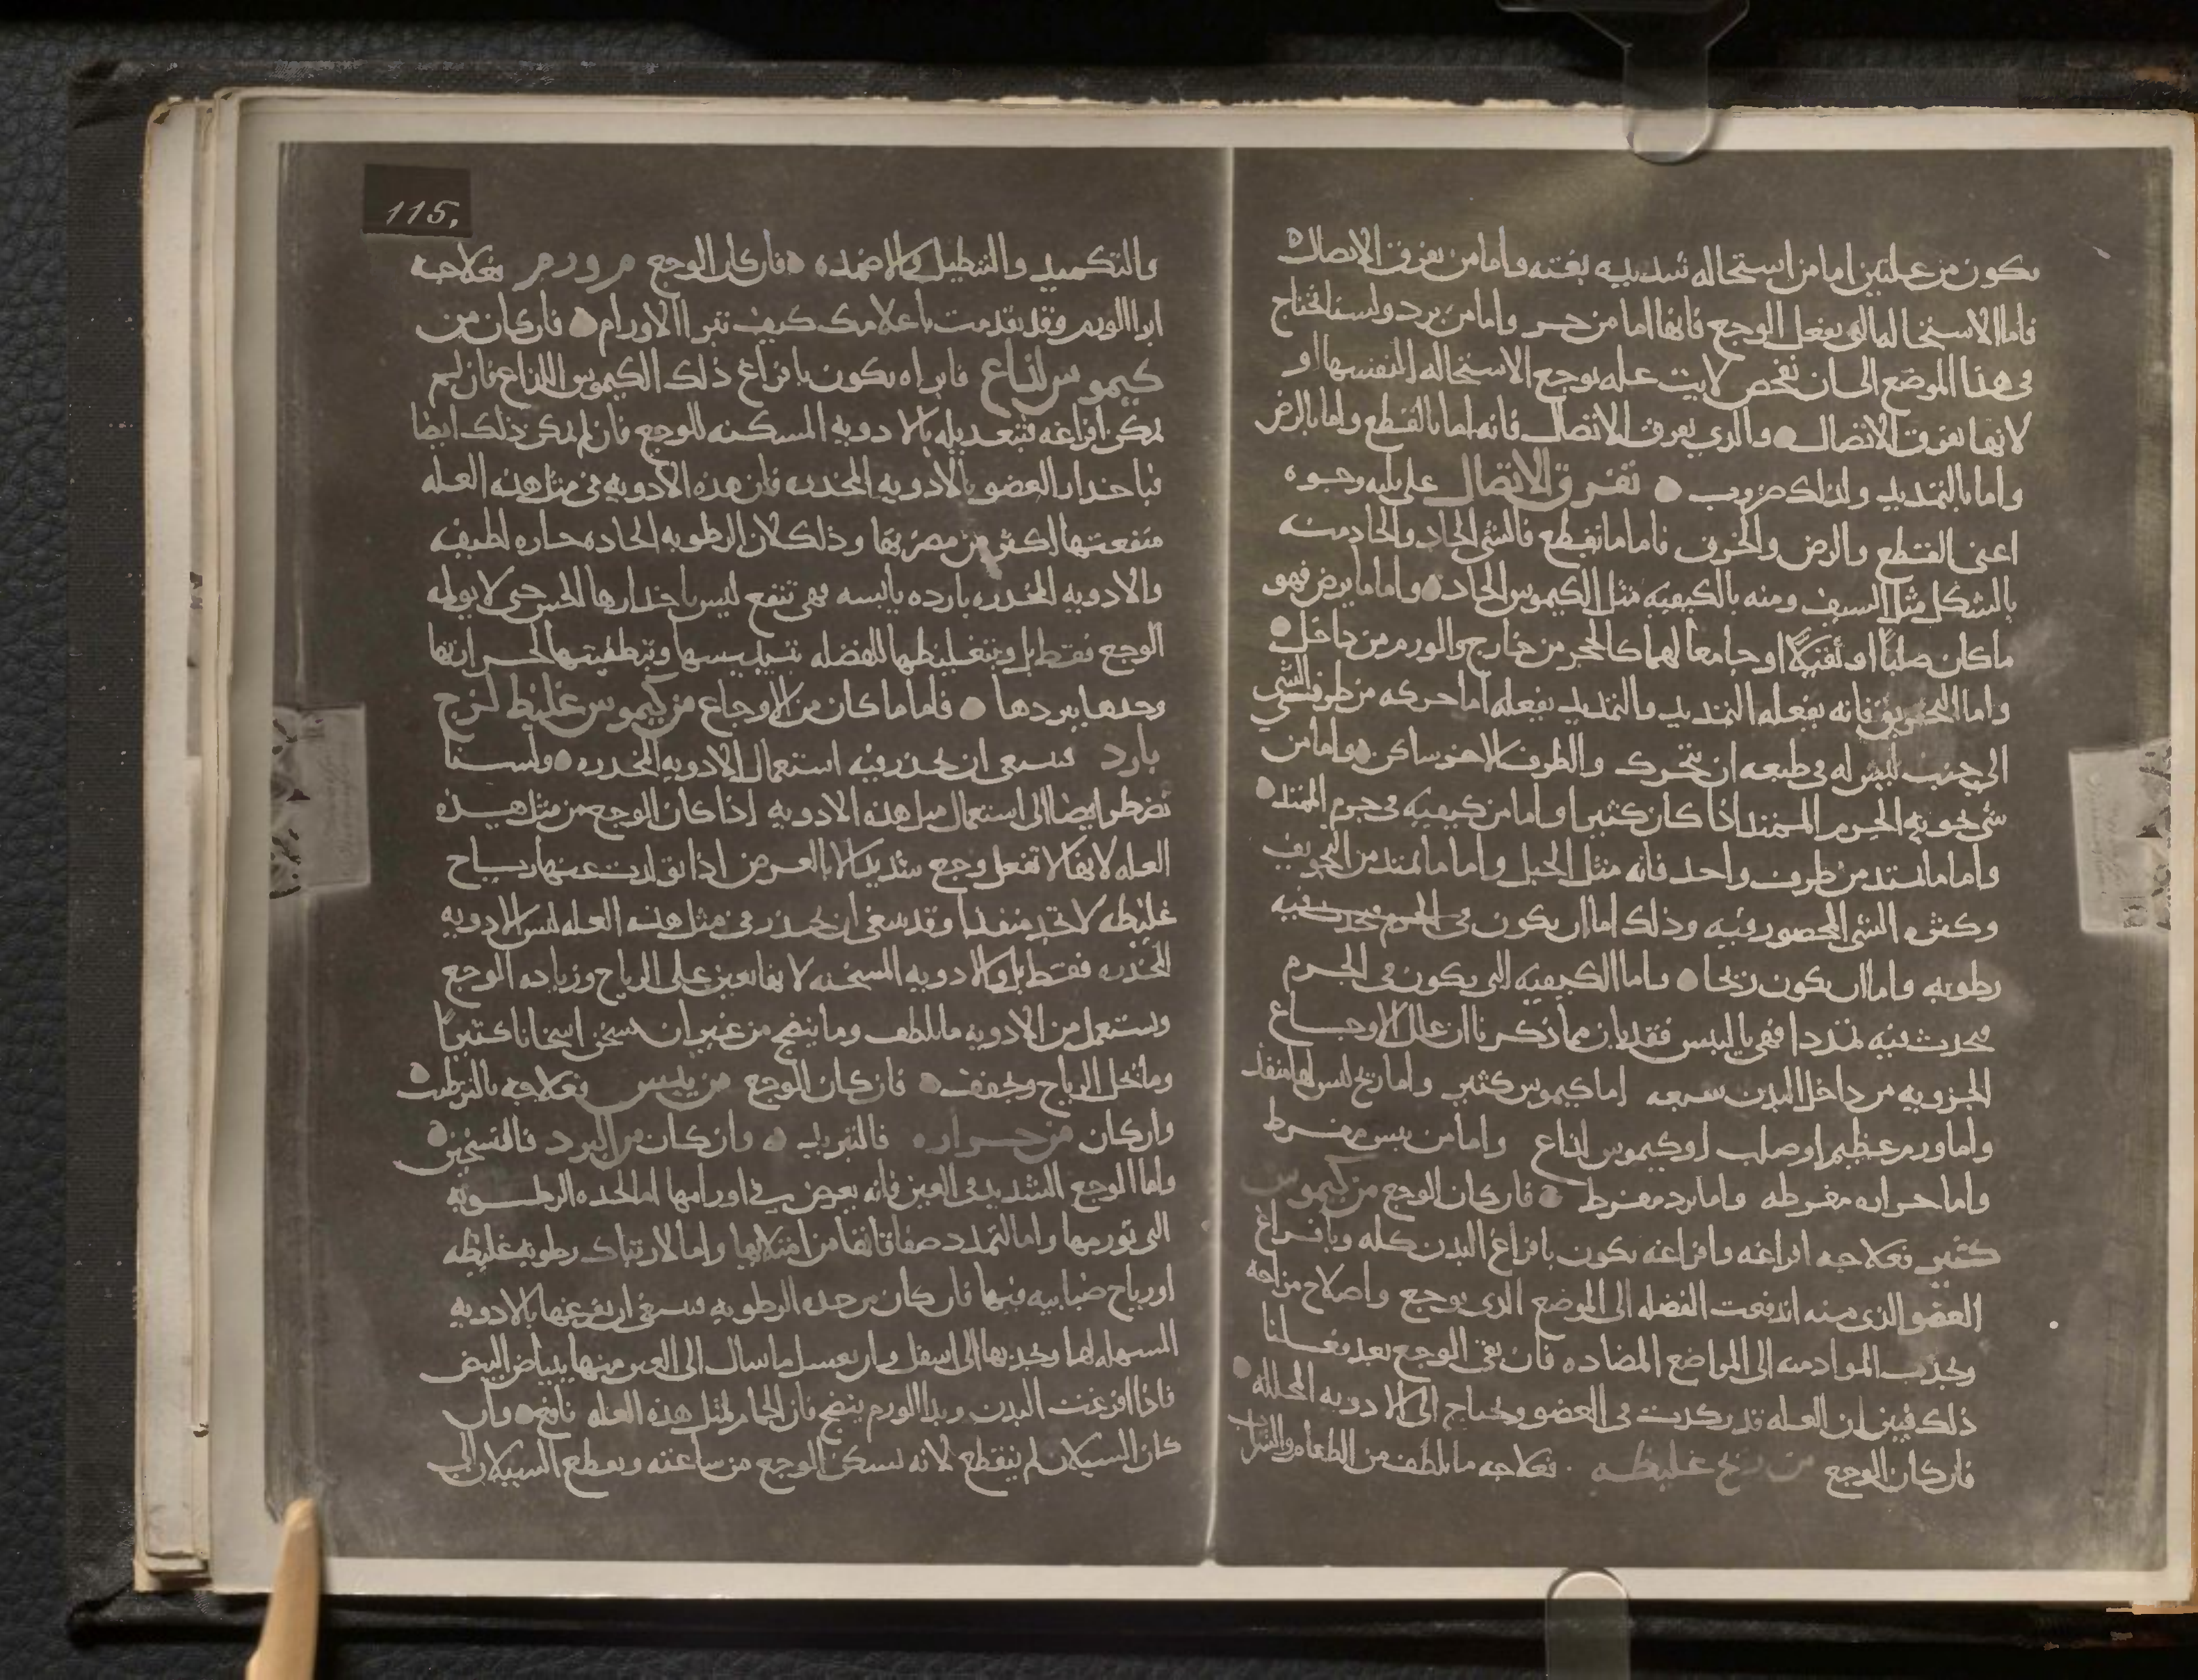 يكون من علتين اما من استحاله شديده بغته واما من تفرق الاتصال
فاما الاستحاله التي تفعل الوجع فانها اما من حر واما من برد ولسنا نحتاج
في هذا الموضع الى ان نفحص لايت عله يوجع الاستحاله النفسها او
لانها تفرق الاتصال والذي يفرق الاتصال فانه اما بالقطع واما بالرض
واما بالتمديد ولذلك ضروب تفرق الاتصال على ثلثه وجوه
اعني القطع والرض والخرق فاما ما يقطع فالشي الحاد والحاد منه
بالشكل مثل السيف ومنه بالكيفيه مثل الكيموس الحاد واما ما يرض فهو
ما كان صلبًا او ثقيلًا او جامعا لهما كالحجر من خارج والورم من داخل
واما التخريق فانه يفعله التمديد والتمديد يفعله اما حركه من طرف الشي
الى جنب ليس له في طبعه ان يتحرك والطرف الاخر ساكن واما من
شي يحويه الجرم الممتد اذا كان كثيرا واما من كيفيه في جرم الممتد
واما ما يمتد من طرف واحد فانه مثل الحبل واما ما يمتد من التجويف
وكثره الشي المحصور فيه وذلك اما ان يكون في الجرم فيه
رطوبه واما ان يكون ريحا واما الكيفيه التي يكون في الجرم
يحدث فيه تمددا فهي اليبس فقد بان مما ذكرنا ان علل الاوجاع
الجزويه من داخل البدن سبعه اما كيموس كثير واما ريح ليس لها منفذ
واما ورم عظيم او صلب او كيموس لذاع واما من يبس مفرط
واما حراره مفرطه واما برد مفرط فان كان الوجع من كيموس
كثير فعلاجه افراغه وافراغه يكون بافراغ البدن كله وبافراغ
العضو الذي منه اندفعت الفضله الى الموضع الذي يوجع واصلاح مزاجه
وبجذب المواد منه الى المواضع المضاده فان بقي الوجع بعد فعلنا
ذلك فبين ان العله قد ركدت في العضو ويحتاج الى الادويه المحلله
فان كان الوجع من ريح غليظه فعلاجه ما يلطف من الطعام والشراب
115.
والتكميد والتنطيل والاضمده فان كان الوجع من ورم فعلاجه
ابرا الورم وقد تقدمت باعلامك كيف تبرا الاورام فان كان من
كيموس لذاع فابراه يكون بافراغ ذلك الكيموس اللذاع فان لم
يمكن افراغه فتبعديله بالادويه المسكنه للوجع فان لم يمكن ذلك ايضا
فباخدار العضو بالادويه المخدره فان هذه الادويه في مثل هذه العله
منفعتها اكثر من مضرتها وذلك لان الرطوبه الحاده حاره لطيفه
والادويه المخدره بارده يابسه فهي تنفع ليس باخدارها الحس حتى لا يولمه
الوجع فقط بل وبتغليظها للفضله بيبسها وبتطفيتها لحرارتها
وحدها ببردها فاما ما كان من الاوجاع من كيموس غليظ لزج
بارد فينبغي ان يحذر فيه استعمال الادويه المخدره ولسنا
نضطر ايضا الى استعمال مثل هذه الادويه اذا كان الوجع من مثل هذه
العله لانها لا تفعل وجع شديدًا الا بالعرض اذا تولدت عنها رياح
غليظه لا تجد منفذا وقد ينبغي ان يحذر في مثل هذه العله ليس الادويه
المخدره فقط بل والادويه المسخنه لانها تعين على الرياح وزياده الوجع
ويستعمل من الادويه ما يلطف وما ينضج من غير ان يسخن اسخانا كثيرًا
وما يحل الرياح ويجفف فان كان الوجع من يبس فعلاجه بالترطيب
وان كان من حراره فالتبريد وان كان من البرد فالتسخين
واما الوجع الشديد في العين فانه يعرض في اورامها اما لحده الرطوبه
التي تورمها واما لتمدد صفاقاتها من امتلائها واما لارتباك رطوبه غليظه
او رياح ضبابيه فيها فان كان من حده الرطوبه فينبغي ان تفرغها بالادويه
المسهله لها وتجذبها الى اسفل وان يغسل ما سال الى العين منها ببياض البيض
فاذا افرغت البدن وبدا الورم ينضج فان الحمام لمثل هذه العله نافع وان
كان السيلان لم ينقطع لانه يسكن الوجع من ساعته ويقطع السيلان الى